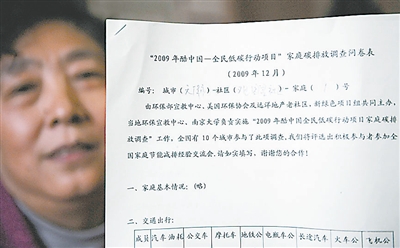 “2009年酷中国－全民低碳行动项目”家庭碳排放调查问卷表
（2009年12月）
编号：城市（ ）-社区（ ）-家庭（ ）号
由环保部宣教中心、美国环保协会及远洋地产老社区、新绿色项目组共同主办，
当地环保宣教中心、南京大学负责实施“2009年酷中国－全民低碳行动项目家庭碳
排放调查”工作。全国有10个城市参与了此项调查，我们将评选出积极参与者参加全
国家庭节能减排经验交流会，请如实填写。谢谢您的合作！
一、家庭基本情况：（略）
二、交通出行：
成员 汽车油耗 公交车 摩托车 地铁公 电瓶车公 长途汽 火车公 飞机公